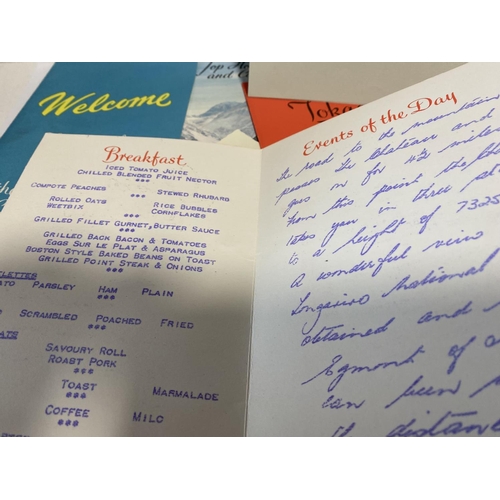 Welcome
Top
and
Toka
Breakfast
ICED TOMATO JUICE
CHILLED BLENDED FRUIT NECTOR
***
COMPOTE PEACHES *** STEWED RHUBARB
ROLLED OATS RICE BUBBLES
WEETBIX CORNFLAKES
***
GRILLED FILLET GURNET, BUTTER SAUCE
***
GRILLED BACK BACON & TOMATOES
EGGS SUR LE PLAT & ASPARAGUS
BOSTON STYLE BAKED BEANS ON TOAST
GRILLED POINT STEAK & ONIONS
***
LETTES
TO PARSLEY HAM PLAIN
***
SCRAMBLED POACHED FRIED
***
ATS
SAVOURY ROLL
ROAST PORK
***
TOAST MARMALADE
***
COFFEE MILO
***
Events of the Day
The road to the mountain
passes the Chateau and
goes on for 4½ miles
From this point the
takes you in three
to a height of 7325
A wonderful view
Tongariro National
obtained and
Egmont of a
can been
it distance